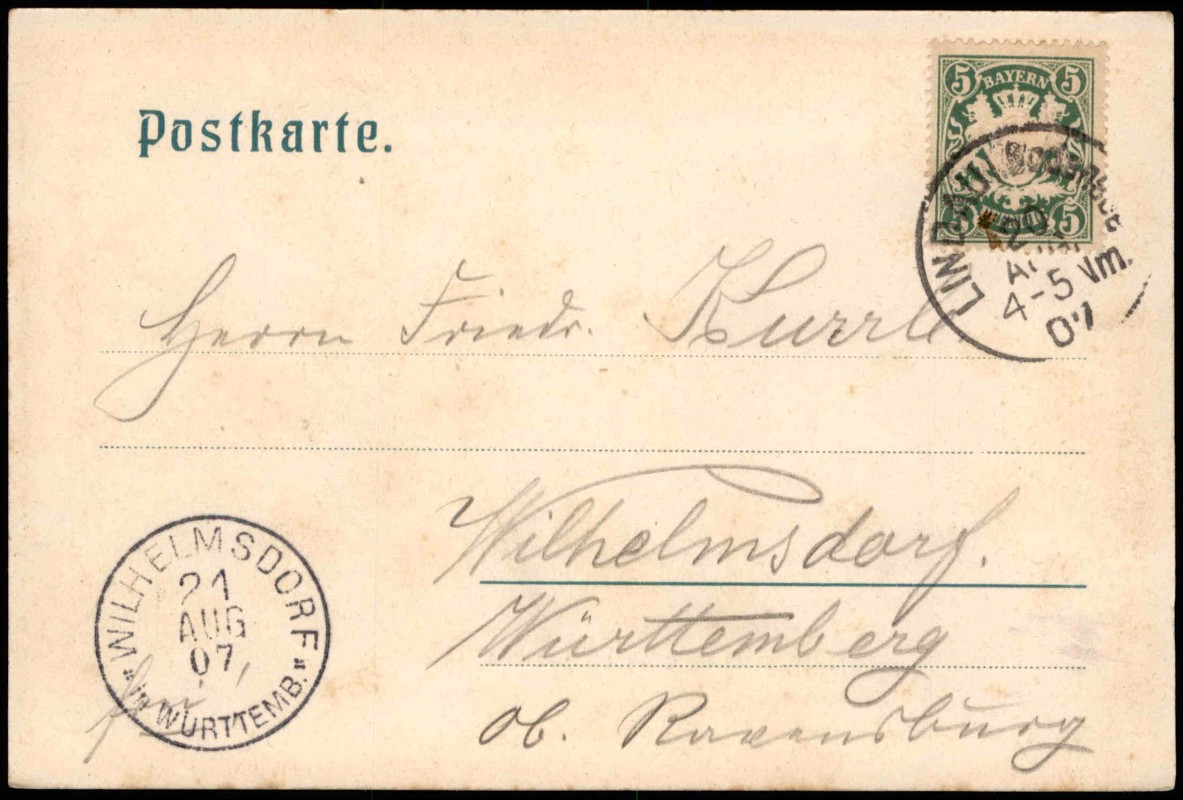 Postkarte.
5 BAYERN 5
5 5
LINDAU Bodensee
20.
AUG
4-5 Vm.
07
Herrn Friedr. Kurrle
Wilhelmsdorf.
Württemberg
ob. Ravensburg
WILHELMSDORF
21
AUG
07
"in WÜRTTEMB."